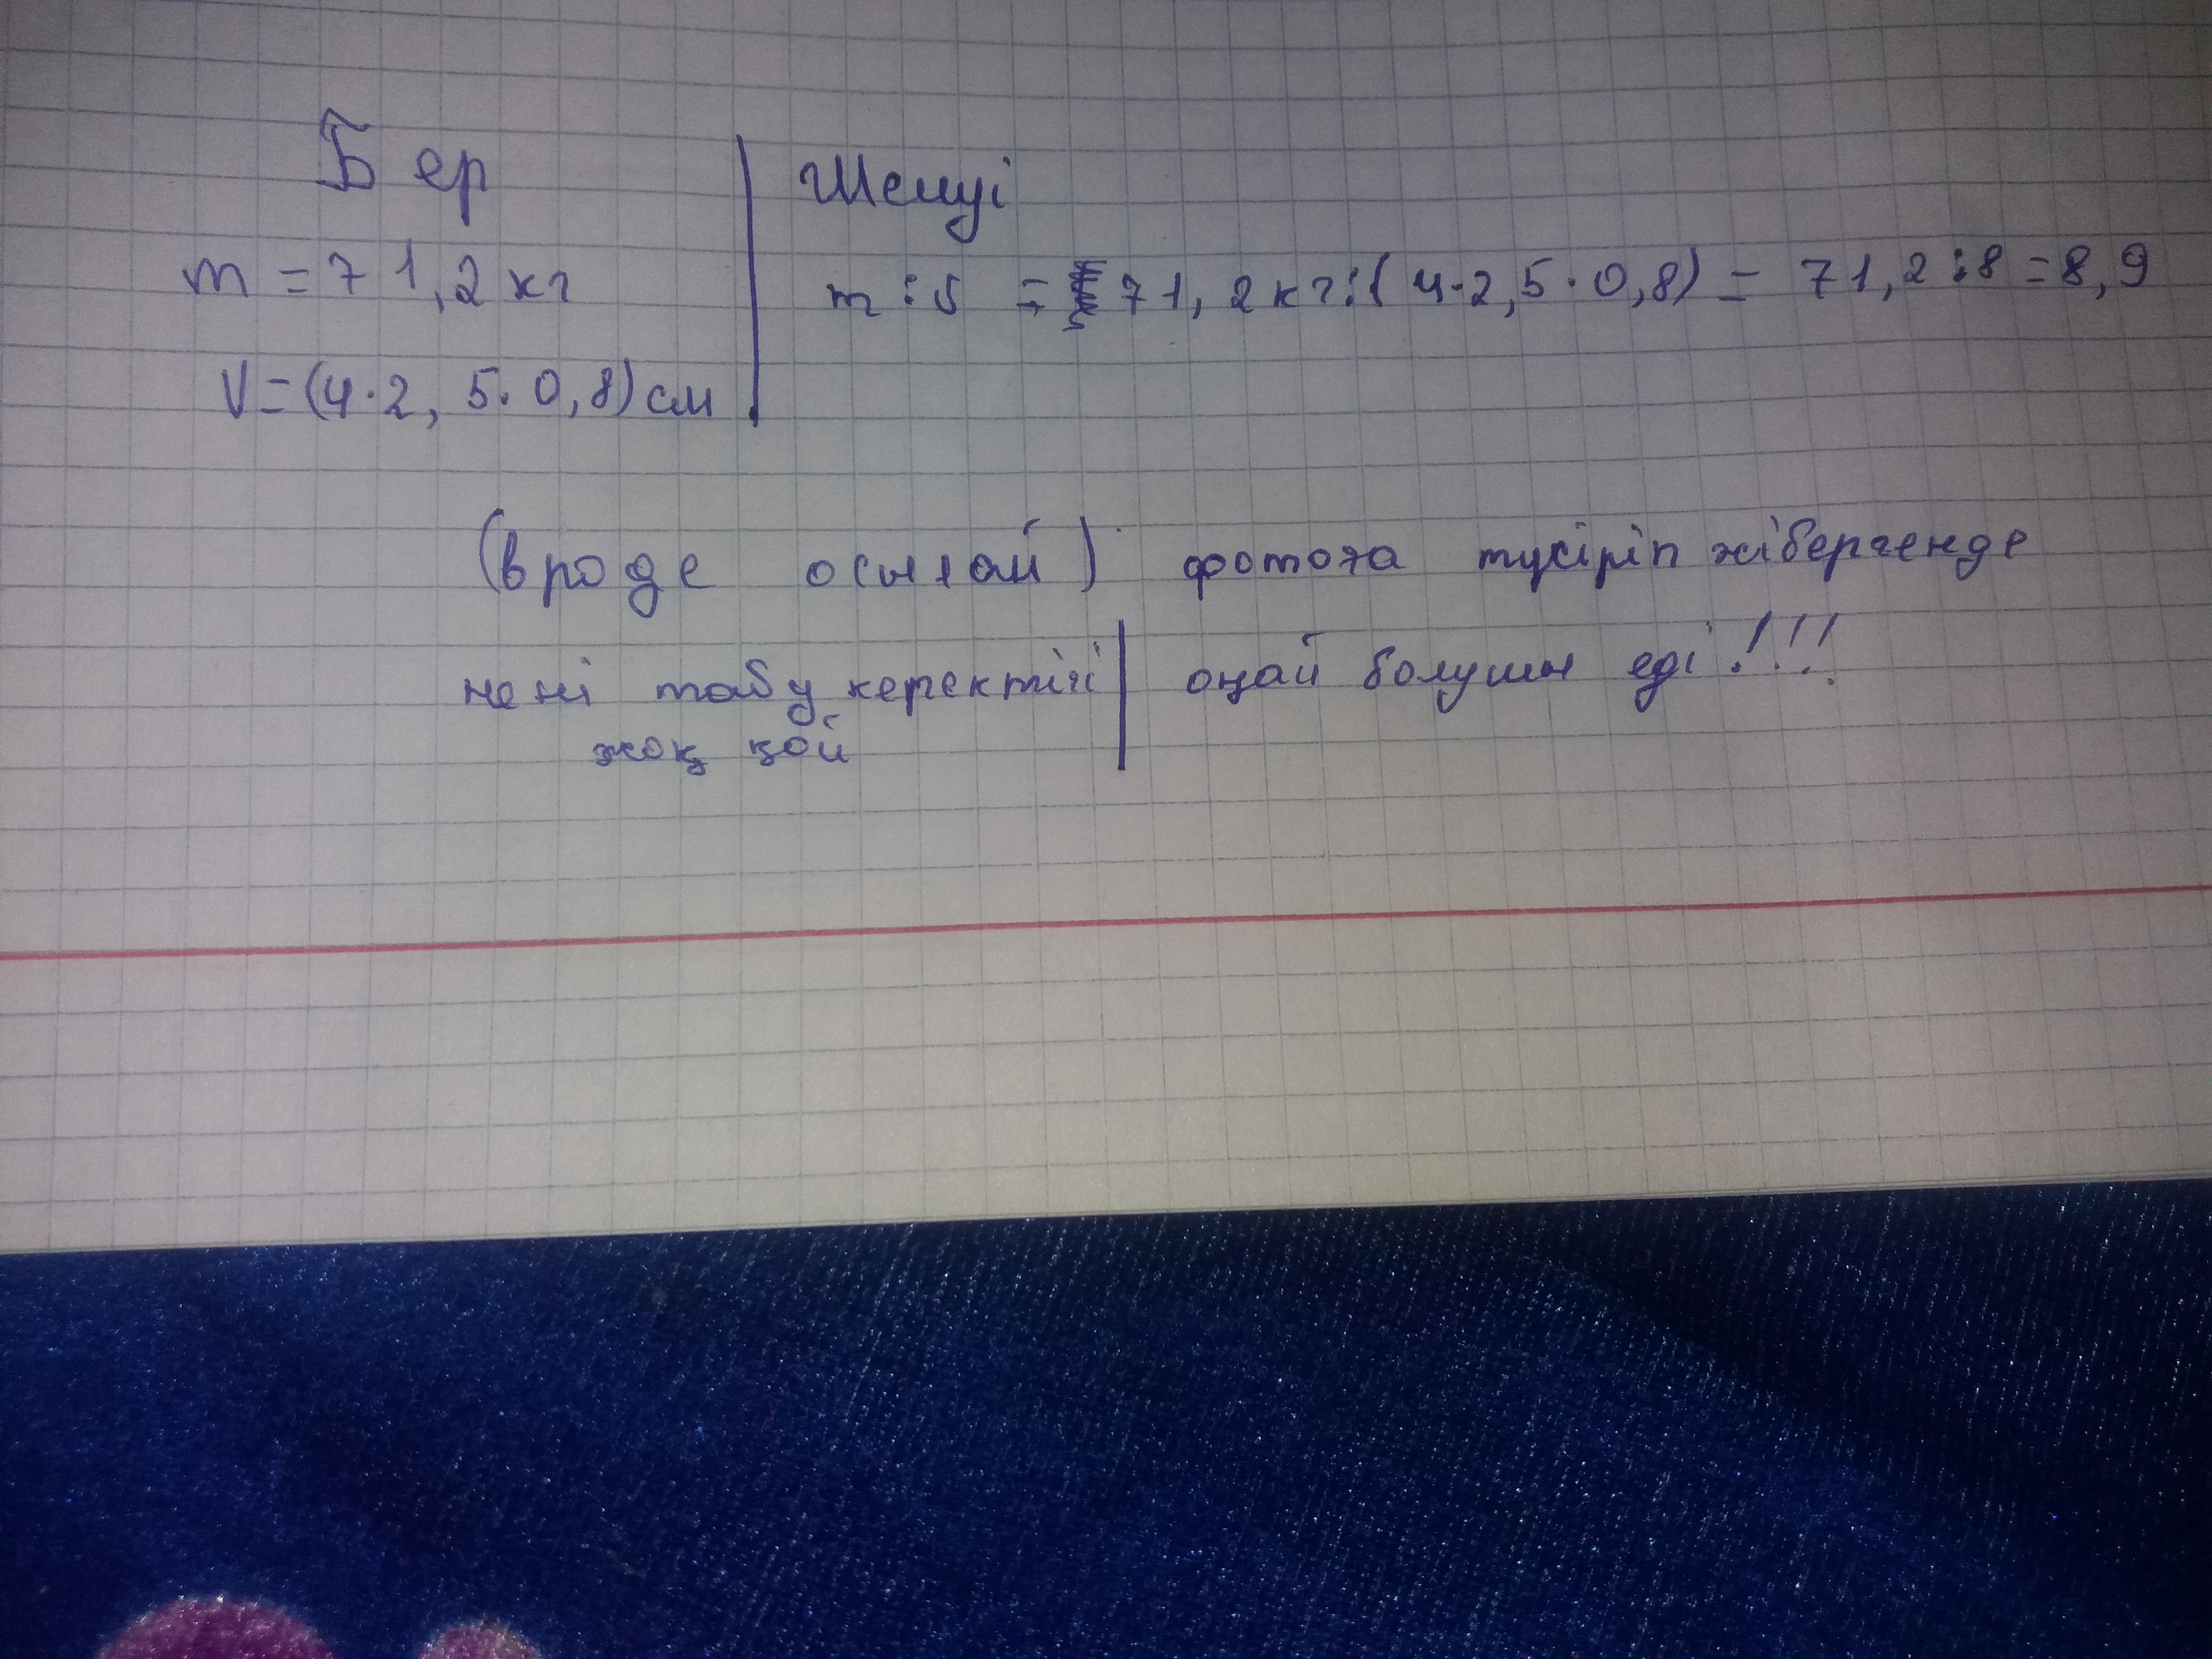 Бер
m = 71,2 кг
V = (4·2,5·0,8) см
Шешуі
m : 5 = 71,2 кг : (4·2,5·0,8) = 71,2 : 8 = 8,9
(вроде осылай) фотоға түсіріп жібергенде
нені табу керектігі оңай болушы еді!!!
жоқ қой